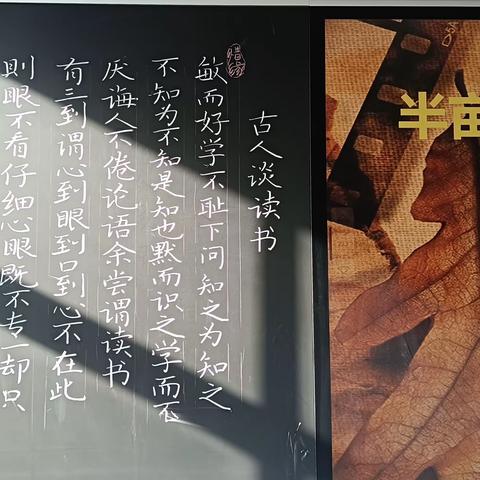 古人谈读书
敏而好学不耻下问知之为知之
不知为不知是知也默而识之学而不
厌诲人不倦论语余尝谓读书
有三到谓心到眼到口到心不在此
则眼不看仔细心眼既不专一却只
半亩